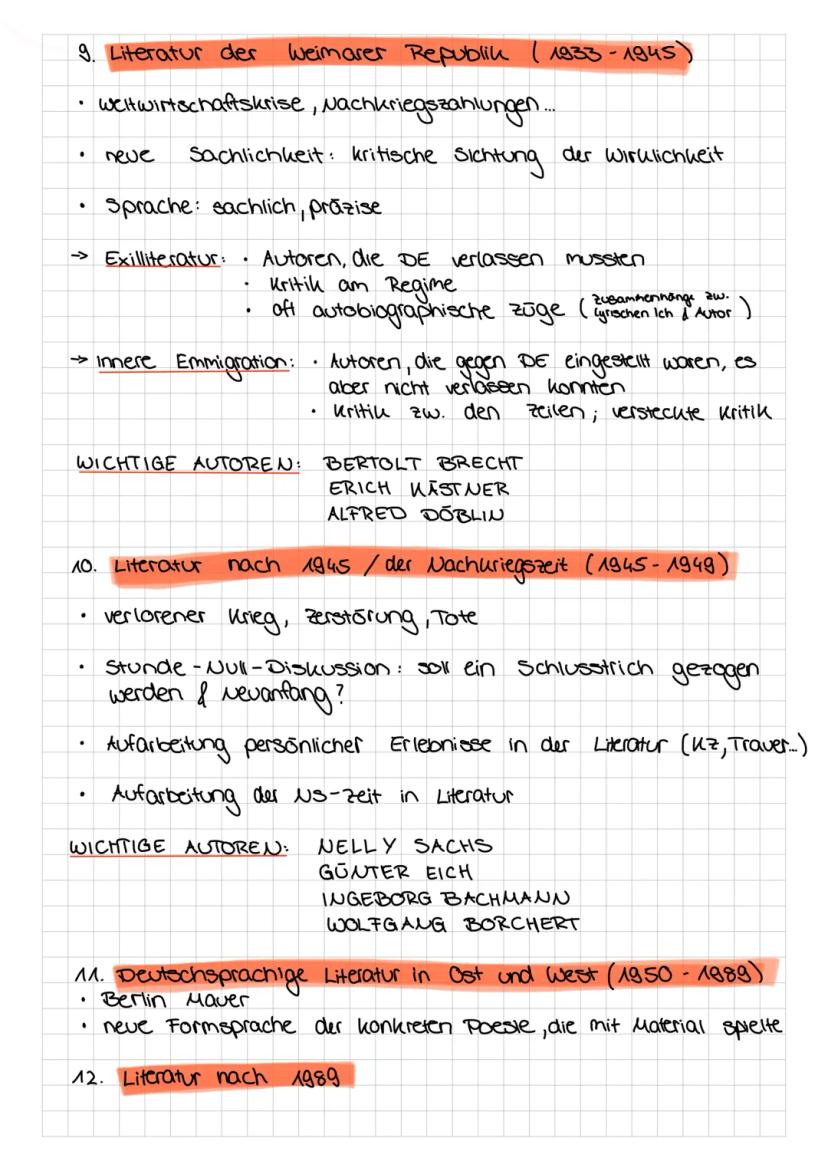 9. Literatur der Weimarer Republik (1933-1945)
• Weltwirtschaftskrise, Nachkriegszahlungen...
• neue Sachlichkeit: kritische Sichtung der Wirklichkeit
• Sprache: sachlich, präzise
→ Exilliteratur: • Autoren, die DE verlassen mussten
• Kritik am Regime
• oft autobiographische Züge (Zusammenhänge zw.
lyrischen Ich & Autor)
→ Innere Emmigration: • Autoren, die gegen DE eingestellt waren, es
aber nicht verlassen konnten
• Kritik zw. den Zeilen; versteckte Kritik
WICHTIGE AUTOREN: BERTOLT BRECHT
ERICH KÄSTNER
ALFRED DÖBLIN
10. Literatur nach 1945 / der Nachkriegszeit (1945-1949)
• verlorener Krieg, Zerstörung, Tote
• Stunde-Null-Diskussion: soll ein Schlusstrich gezogen
werden & Neuanfang?
• Aufarbeitung persönlicher Erlebnisse in der Literatur (KZ, Trauer...)
• Aufarbeitung der NS-Zeit in Literatur
WICHTIGE AUTOREN: NELLY SACHS
GÜNTER EICH
INGEBORG BACHMANN
WOLFGANG BORCHERT
11. Deutschsprachige Literatur in Ost und West (1950-1989)
• Berlin Mauer
• neue Formsprache der konkreten Poesie, die mit Material spielte
12. Literatur nach 1989